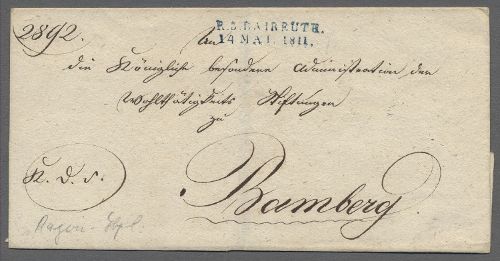 2892.
R.3.BAIREUTH.
14 MAI. 1811.
An
die Königliche besondere Administration der
Wohlthätigkeits Stiftungen
zu
Bamberg.
K. D. S.